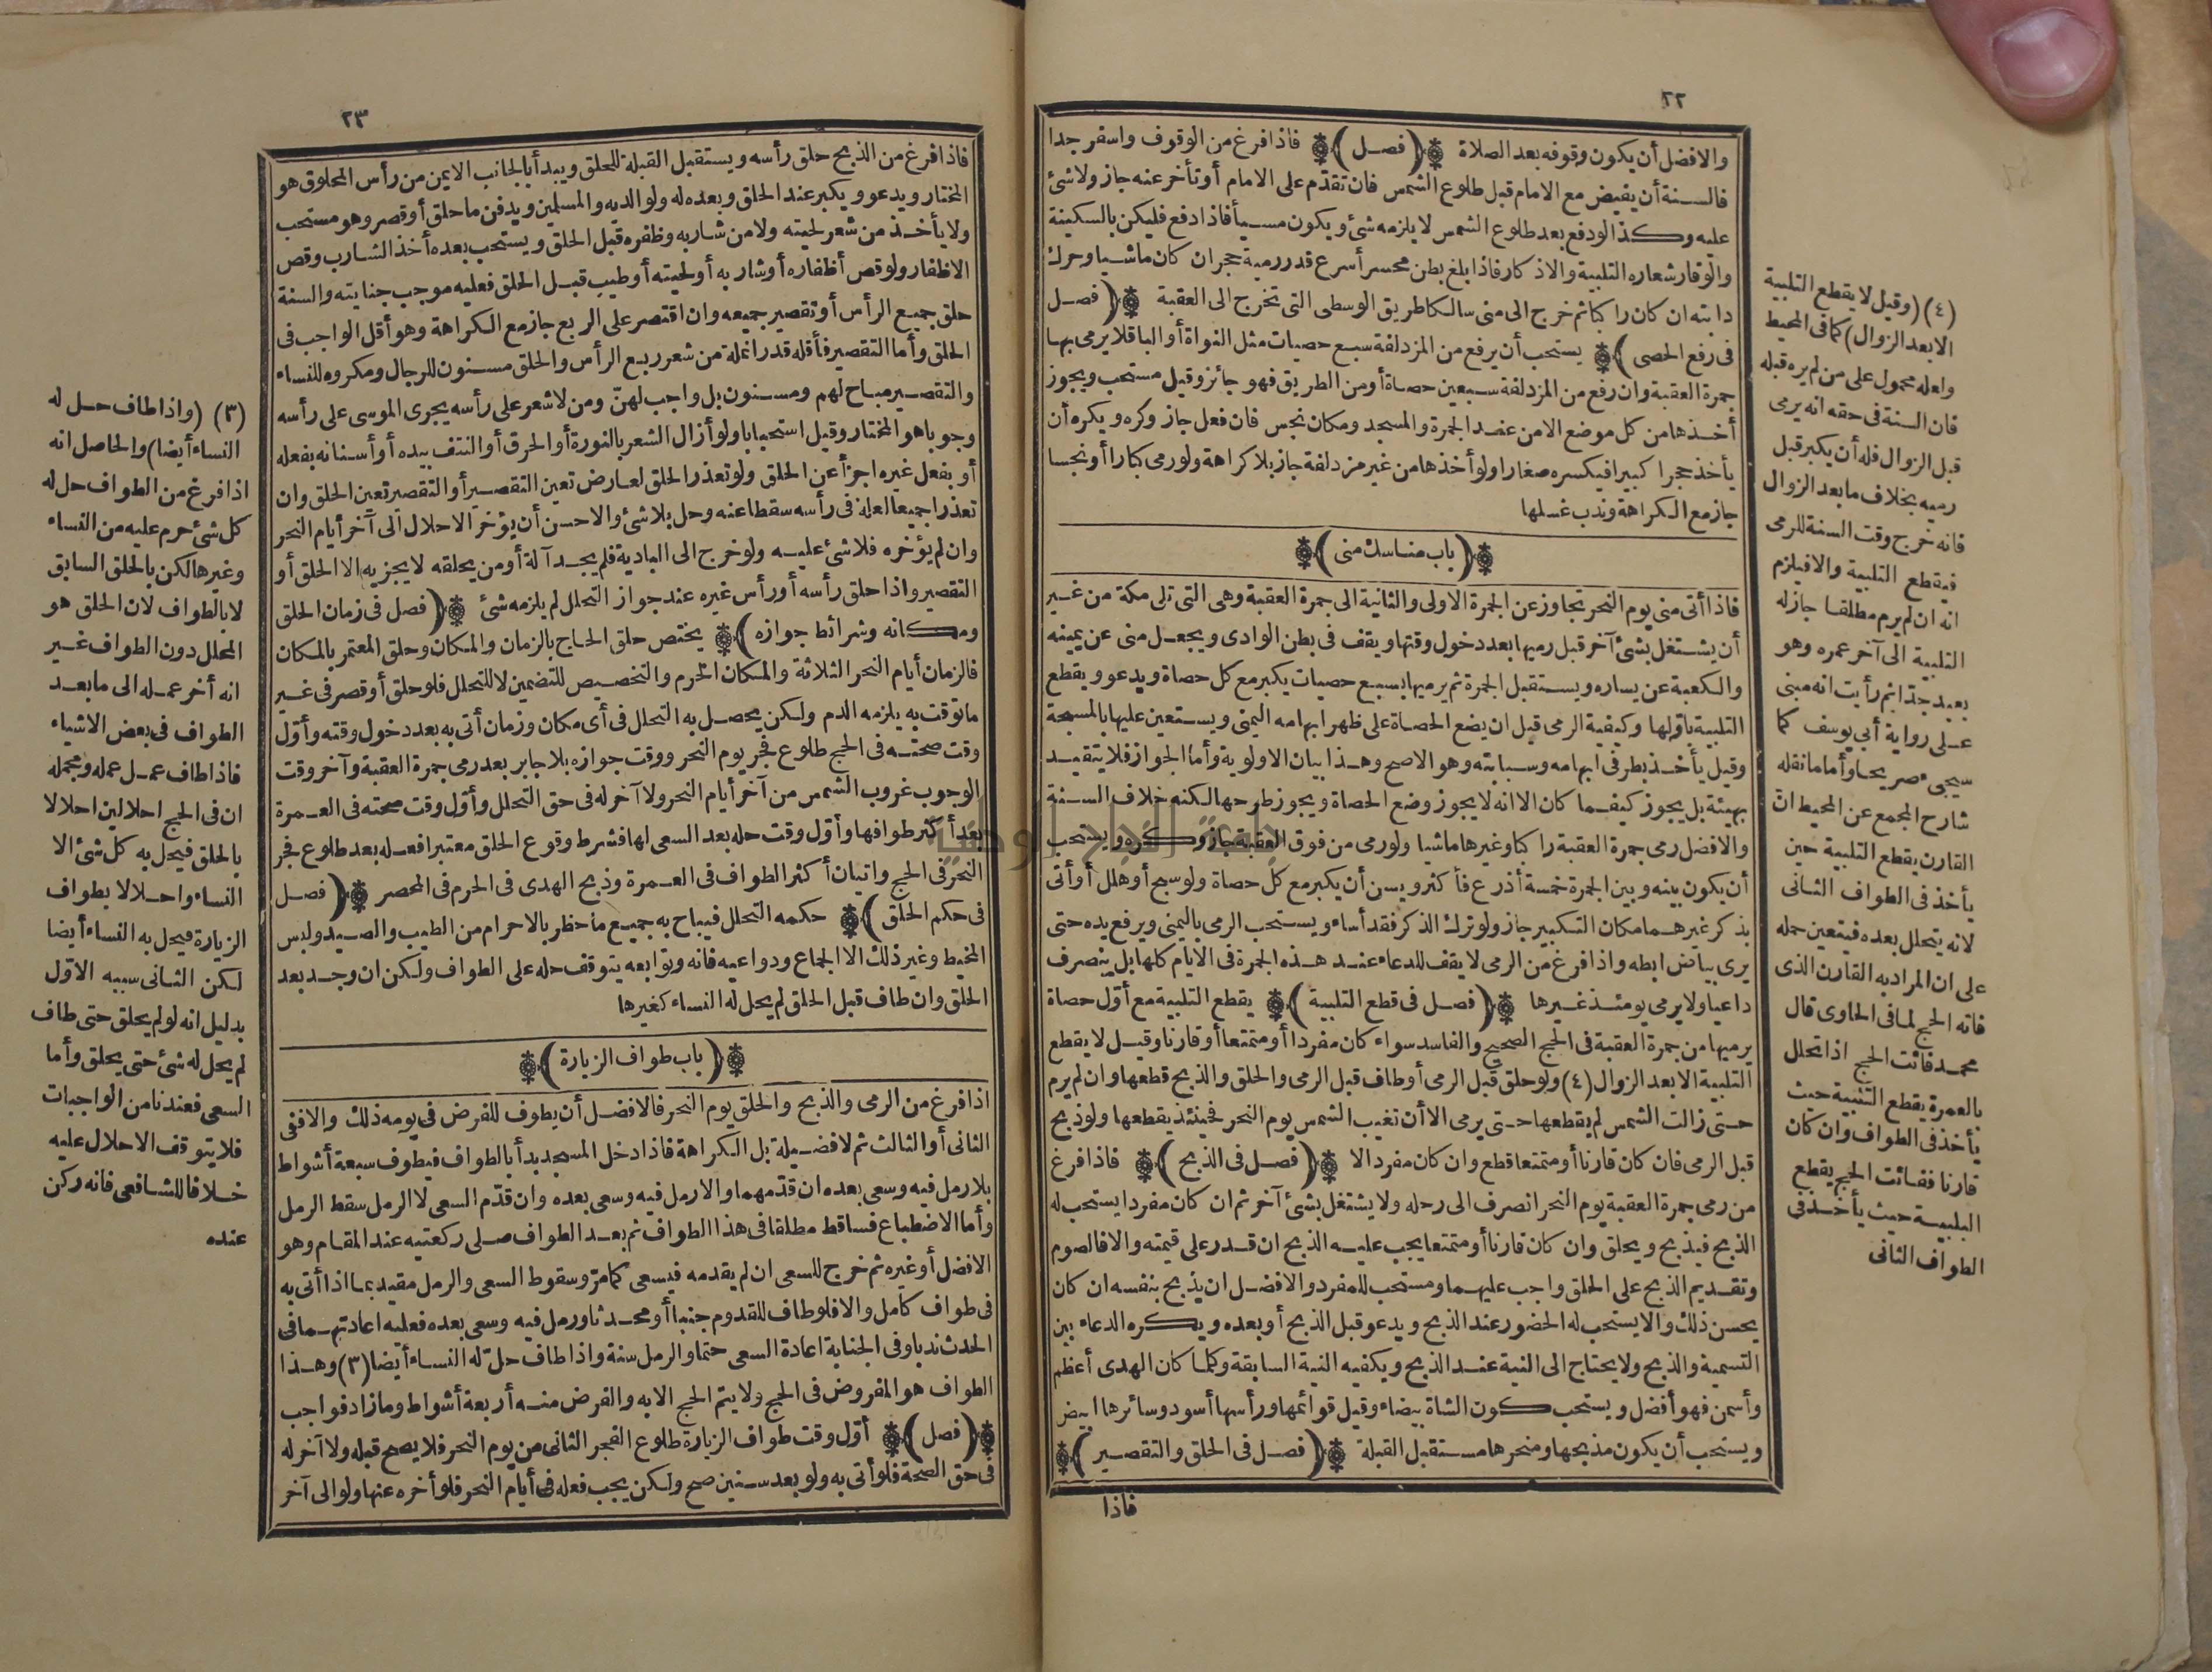 ٢٢
والافضل أن يكون وقوفه بعد الصلاة ❁ (فصل) ❁ فاذا فرغ من الوقوف واسفر جدا
فالسنة أن يفيض مع الامام قبل طلوع الشمس فان تقدم على الامام أو تأخر عنه جاز ولا شئ
عليه وكذا لو دفع بعد طلوع الشمس لا يلزمه شئ ويكون مسيأ فاذا دفع فليكن بالسكينة
والوقار شعاره التلبية والاذكار فاذا بلغ بطن محسر أسرع قدر رمية حجر ان كان ماشيا وحرك
دابته ان كان راكبا ثم خرج الى منى سالكا طريق الوسطى التى تخرج الى العقبة ❁ (فصل
فى رفع الحصى) ❁ يستحب أن يرفع من المزدلفة سبع حصيات مثل النواة أو الباقلا يرمى بها
جمرة العقبة وان رفع من المزدلفة سبعين حصاة أو من الطريق فهو جائز وقيل مستحب ويجوز
أخذها من كل موضع الا من عند الجمرة والمسجد ومكان نجس فان فعل جاز وكره ويكره أن
يأخذ حجرا كبيرا فيكسره صغارا ولو أخذها من غير مزدلفة جاز بلا كراهة ولو رمى كبارا أو نجسا
جاز مع الكراهة وندب غسلها
❁ (باب مناسك منى) ❁
فاذا أتى منى يوم النحر تجاوز عن الجمرة الاولى والثانية الى جمرة العقبة وهى التى تلى مكة من غير
أن يشتغل بشئ آخر قبل رميها بعد دخول وقتها ويقف فى بطن الوادى ويجعل منى عن يمينه
والكعبة عن يساره ويستقبل الجمرة ثم يرميها بسبع حصيات يكبر مع كل حصاة ويدعو ويقطع
التلبية باولها وكيفية الرمى قيل ان يضع الحصاة على ظهر ابهامه اليمنى ويستعين عليها بالمسبحة
وقيل يأخذ بطرفى ابهامه وسبابته وهو الاصح وهذا بيان الاولوية وأما الجواز فلا يتقيد
بهيئة بل يجوز كيفما كان الا انه لا يجوز وضع الحصاة ويجوز طرحها لكنه خلاف السنة
والافضل رمى جمرة العقبة راكبا وغيرها ماشيا ولو رمى من فوق العقبة جاز وكره ويستحب
أن يكون بينه وبين الجمرة خمسة أذرع فأكثر ويسن أن يكبر مع كل حصاة ولو سبح أو هلل أو أتى
بذكر غيرهما مكان التكبير جاز ولو ترك الذكر فقد أساء ويستحب الرمى باليمنى ويرفع يده حتى
يرى بياض ابطه واذا فرغ من الرمى لا يقف للدعاء عند هذه الجمرة فى الايام كلها بل ينصرف
داعيا ولا يرمى يومئذ غيرها ❁ (فصل فى قطع التلبية) ❁ يقطع التلبية مع أول حصاة
يرميها من جمرة العقبة فى الحج الصحيح والفاسد سواء كان مفردا أو متمتعا أو قارنا وقيل لا يقطع
التلبية الا بعد الزوال (٤) ولو حلق قبل الرمى أو طاف قبل الرمى والحلق والذبح قطعها وان لم يرم
حتى زالت الشمس لم يقطعها حتى يرمى الا أن تغيب الشمس يوم النحر فحينئذ يقطعها ولو ذبح
قبل الرمى فان كان قارنا أو متمتعا قطع وان كان مفردا لا ❁ (فصل فى الذبح) ❁ فاذا فرغ
من رمى جمرة العقبة يوم النحر انصرف الى رحله ولا يشتغل بشئ آخر ثم ان كان مفردا يستحب له
الذبح فيذبح ويحلق وان كان قارنا أو متمتعا يجب عليه الذبح ان قدر على قيمته والا فالصوم
وتقديم الذبح على الحلق واجب عليهما ومستحب للمفرد والافضل ان يذبح بنفسه ان كان
يحسن ذلك والا يستحب له الحضور عند الذبح ويدعو قبل الذبح أو بعده ويكره الدعاء بين
التسمية والذبح ولا يحتاج الى النية عند الذبح ويكفيه النية السابقة وكلما كان الهدى أعظم
وأسمن فهو أفضل ويستحب كون الشاة بيضاء وقيل قوائمها ورأسها أسود وسائرها ابيض
ويستحب أن يكون مذبحها ومنحرها مستقبل القبلة ❁ (فصل فى الحلق والتقصير) ❁
فاذا
(٤) (وقيل لا يقطع التلبية
الا بعد الزوال) كما فى المحيط
ولعله محمول على من لم يره قبله
فان السنة فى حقه انه يرمى
قبل الزوال فله أن يكبر قبل
رميه بخلاف ما بعد الزوال
فانه خرج وقت السنة للرمى
فيقطع التلبية والا فيلزم
انه ان لم يرم مطلقا جاز له
التلبية الى آخر عمره وهو
بعيد جدا ثم رأيت انه مبنى
على رواية أبى يوسف كما
سيجى صريحا وأما ما نقله
شارح المجمع عن المحيط ان
القارن يقطع التلبية حين
يأخذ فى الطواف الثانى
لانه يتحلل بعده فيتعين حمله
على ان المراد به القارن الذى
فاته الحج لما فى الحاوى قال
محمد فائت الحج اذا تحلل
بالعمرة يقطع التلبية حيث
يأخذ فى الطواف وان كان
قارنا ففائت الحج يقطع
التلبية حيث يأخذ فى
الطواف الثانى
٢٣
فاذا فرغ من الذبح حلق رأسه ويستقبل القبلة للحلق ويبدأ بالجانب الايمن من رأس المحلوق هو
المختار ويدعو ويكبر عند الحلق وبعده له ولوالديه والمسلمين ويدفن ما حلق أو قصر وهو مستحب
ولا يأخذ من شعر لحيته ولا من شاربه وظفره قبل الحلق ويستحب بعده أخذ الشارب وقص
الاظفار ولو قص أظفاره أو شاربه أو لحيته أو طيب قبل الحلق فعليه موجب جنايته والسنة
حلق جميع الرأس أو تقصير جميعه وان اقتصر على الربع جاز مع الكراهة وهو أقل الواجب فى
الحلق وأما التقصير فأقله قدر انملة من شعر ربع الرأس والحلق مسنون للرجال ومكروه للنساء
والتقصير مباح لهم ومسنون بل واجب لهن ومن لا شعر على رأسه يجرى الموسى على رأسه
وجوبا هو المختار وقيل استحبابا ولو أزال الشعر بالنورة أو الحرق أو النتف بيده أو أسنانه بفعله
أو بفعل غيره اجزأ عن الحلق ولو تعذر الحلق لعارض تعين التقصير أو التقصير تعين الحلق وان
تعذرا جميعا لعلة فى رأسه سقطا عنه وحل بلا شئ والاحسن أن يؤخر الاحلال الى آخر أيام النحر
وان لم يؤخره فلا شئ عليه ولو خرج الى البادية فلم يجد آلة أو من يحلقه لا يجزيه الا الحلق أو
التقصير واذا حلق رأسه أو رأس غيره عند جواز التحلل لم يلزمه شئ ❁ (فصل فى زمان الحلق
ومكانه وشرائط جوازه) ❁ يختص حلق الحاج بالزمان والمكان وحلق المعتمر بالمكان
فالزمان أيام النحر الثلاثة والمكان الحرم والتخصيص للتضمين لا للتحلل فلو حلق أو قصر فى غير
ما توقت به يلزمه الدم ولكن يحصل به التحلل فى أى مكان وزمان أتى به بعد دخول وقته وأول
وقت صحته فى الحج طلوع فجر يوم النحر ووقت جوازه بلا جابر بعد رمى جمرة العقبة وآخر وقت
الوجوب غروب الشمس من آخر أيام النحر ولا آخر له فى حق التحلل وأول وقت صحته فى العمرة
بعد أكثر طوافها وأول وقت حله بعد السعى لها فشرط وقوع الحلق معتبرا فعله بعد طلوع فجر
النحر فى الحج واتيان أكثر الطواف فى العمرة وذبح الهدى فى الحرم فى المحصر ❁ (فصل
فى حكم الحلق) ❁ حكمه التحلل فيباح به جميع ما حظر بالاحرام من الطيب والصيد ولبس
المخيط وغير ذلك الا الجماع ودواعيه فانه وتوابعه يتوقف حله على الطواف ولكن ان وجد بعد
الحلق وان طاف قبل الحلق لم يحل له النساء كغيرها
❁ (باب طواف الزيارة) ❁
اذا فرغ من الرمى والذبح والحلق يوم النحر فالافضل أن يطوف للفرض فى يومه ذلك والا ففى
الثانى أو الثالث ثم لا فضيلة بل الكراهة فاذا دخل المسجد بدأ بالطواف فيطوف سبعة أشواط
بلا رمل فيه وسعى بعده ان قدمهما والا رمل فيه وسعى بعده وان قدم السعى لا الرمل سقط الرمل
وأما الاضطباع فساقط مطلقا فى هذا الطواف ثم بعد الطواف صلى ركعتيه عند المقام وهو
الافضل أو غيره ثم خرج للسعى ان لم يقدمه فيسعى كما مر وسقوط السعى والرمل مقيد بما اذا أتى به
فى طواف كامل والا فلو طاف للقدوم جنبا أو محدثا ورمل فيه وسعى بعده فعليه اعادتهما فى
الحدث ندبا وفى الجنابة اعادة السعى حتما والرمل سنة واذا طاف حل له النساء أيضا (٣) وهذا
الطواف هو المفروض فى الحج ولا يتم الحج الا به والفرض منه أربعة أشواط وما زاد فواجب
❁ (فصل) ❁ أول وقت طواف الزيارة طلوع الفجر الثانى من يوم النحر فلا يصح قبله ولا آخر له
فى حق الصحة فلو أتى به ولو بعد سنين صح ولكن يجب فعله فى أيام النحر فلو أخره عنها ولو الى آخر
(٣) (واذا طاف حل له
النساء أيضا) والحاصل انه
اذا فرغ من الطواف حل له
كل شئ حرم عليه من النساء
وغيرها لكن بالحلق السابق
لا بالطواف لان الحلق هو
المحلل دون الطواف غير
انه أخر عمله الى ما بعد
الطواف فى بعض الاشياء
فاذا طاف عمل عمله ومجمله
ان فى الحج احلالين احلالا
بالحلق فيحل به كل شئ الا
النساء واحلالا بطواف
الزيارة فيحل به النساء أيضا
لكن الثانى سببه الاول
بدليل انه لو لم يحلق حتى طاف
لم يحل له شئ حتى يحلق وأما
السعى فعندنا من الواجبات
فلا يتوقف الاحلال عليه
خلافا للشافعى فانه ركن
عنده